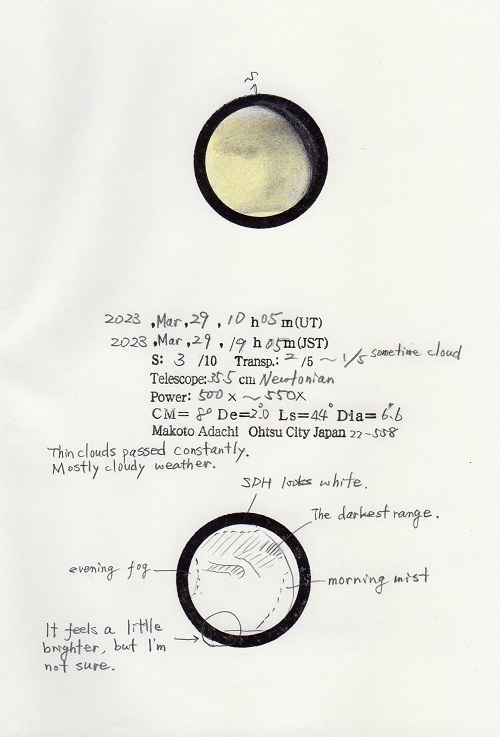 S
2023 ,Mar ,29 , 10 h 05 m(UT)
2023 ,Mar ,29 , 19 h 05 m(JST)
S: 3 /10 Transp.: 2 /5 ~ 1/5 sometime cloud
Telescope:35.5 cm Newtonian
Power: 500 x ~ 550X
CM= 8° De=2.°0 Ls=44° Dia= 6."6
Makoto Adachi Ohtsu City Japan 22-558
Thin clouds passed constantly.
Mostly cloudy weather.
SPH looks white.
The darkest range.
evening fog
morning mist
It feels a little
brighter, but I'm
not sure.